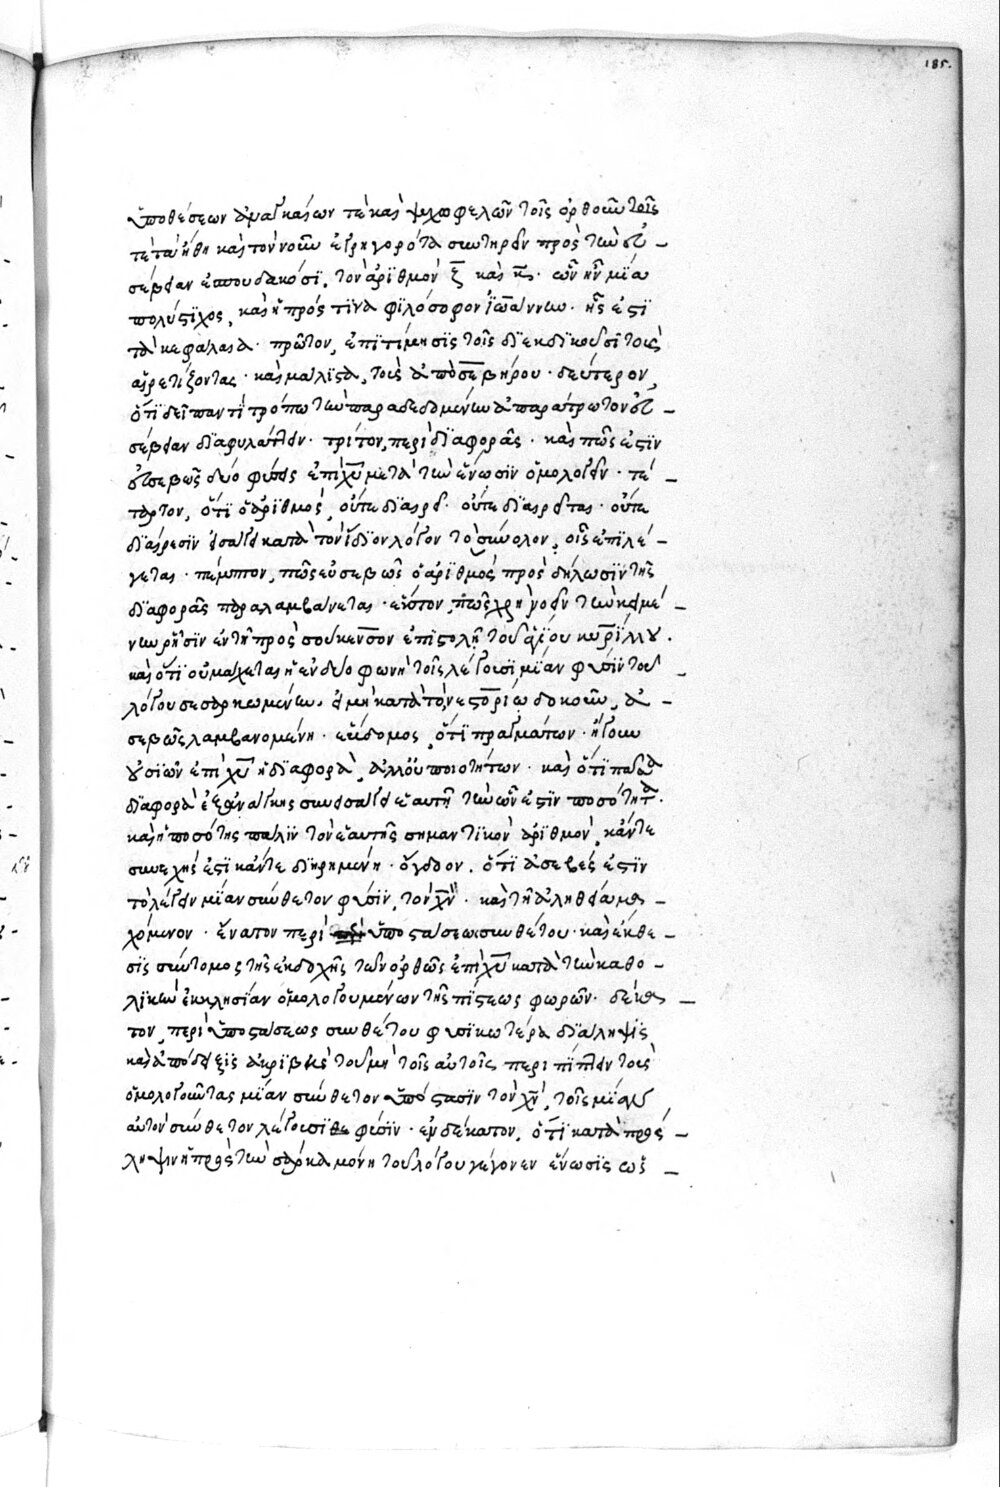 185.
ὑποθέσεων ἀναγκαίων τὲ καὶ ψυχωφελῶν τοῖς ὀρθοῦν τοῖς
τὲ τὰ ἤθη καὶ τὸν νοῦν ἐγρηγορότα συντηρεῖν πρὸς τὴν εὐ –
σέβειαν ἐσπουδακόσϊ, τὸν ἀρϊθμὸν ξ̅ καὶ κ̅. ὧν ἦν μϊὰ
πολύστϊχος, καὶ ἡ πρός τϊνα φϊλόσοφον ϊω̅άννην. ἧς ἐστϊ
τὰ κεφάλαια. πρῶτον, ἐπϊτίμησϊς τοῖς δϊεκδϊκοῦσϊ τοὺς
αἱρετίζοντας. καὶ μάλϊστα, τοὺς ἀπὸ σεβήρου. δεύτερον,
ὅτϊ δεῖ παντὶ τρόπω τὴν παραδεδομένην ἀπαράτρωτον εὐ –
σέβειαν δϊαφυλάττειν. τρίτον, περὶ δϊαφορᾶς. καὶ πῶς ἐστϊν
εὐσεβῶς δύο φύσεις ἐπὶ χ̅υ̅ μετὰ τὴν ἕνωσϊν ὁμολογεῖν. τέ –
ταρτον, ὅτϊ ὁ ἀρϊθμὸς, οὔτε δϊαιρεῖ. οὔτε δϊαιρεῖται. οὔτε
δϊαίρεσϊν εἰσάγει κατὰ τὸν ἴδϊον λόγον τὸ σύνολον, οἷς ἐπϊλέ –
γεται. πέμπτον, πῶς εὐσεβῶς ὁ ἀρϊθμὸς πρὸς δήλωσϊν τῆς
δϊαφορᾶς παραλαμβάνεται. ἕκτον, πῶς χρὴ νοεῖν τὴν κειμέ –
νην ῥῆσϊν ἐν τῇ πρὸς σούκενσον ἐπϊστολῇ τοῦ ἁγίου κυρΐλλου.
καὶ ὅτϊ οὐ μάχεται ἡ ἐν δύο φωνὴ τοῖς λέγουσϊ μΐαν φύσϊν τοῦ
λόγου σεσαρκωμένην. εἰ μὴ κατὰ τὸ νεστορίω δοκοῦν, ἀ –
σεβῶς λαμβανομένη. ἕβδομος, ὅτϊ πραγμάτων. ἤγουν
οὐσϊῶν ἐπὶ χ̅υ̅ ἡ δϊαφορὰ, ἀλλ' οὐ ποιοτήτων. καὶ ὅτϊ πᾶσα
δϊαφορὰ ἐξ ἀνάγκης συνεισάγει ἑαυτῇ τὴν ὧν ἐστϊν ποσότητα.
καὶ ἡ ποσότης πάλϊν τὸν ἑαυτῆς σημαντϊκὸν ἀρϊθμὸν, κἄν τε
συνεχής ἐστϊ κἄν τε δϊῃρημένη. ὄγδοον. ὅτϊ ἀσεβές ἐστϊν
τὸ λέγειν μΐαν σύνθετον φύσϊν, τὸν χ̅ν̅. καὶ τῇ ἀληθεία μα –
χόμενον. ἔνατον περὶ ὑποστάσεως συνθέτου. καὶ ἔκθε –
σϊς σύντομος τῆς ἐκδοχῆς τῶν ὀρθῶς ἐπὶ χ̅υ̅ κατὰ τὴν καθο –
λϊκὴν ἐκκλησΐαν ὁμολογουμένων τῆς πΐστεως φωνῶν. δέκα –
τον, περὶ ὑποστάσεως συνθέτου φυσϊκωτέρα δϊάληψϊς
καὶ ἀπόδειξϊς ἀκρϊβὴς τοῦ μὴ τοῖς αὐτοῖς περιπΐπτειν τοὺς
ὁμολογοῦντας μΐαν σύνθετον ὑπόστασϊν τὸν χ̅ν̅, τοῖς μΐαν
αὐτὸν σύνθετον λέγουσϊ φύσϊν. ἐνδέκατον, ὅτϊ κατὰ πρόσ –
ληψϊν ἡ πρὸς τὴν σάρκα μόνη τοῦ λόγου γέγονεν ἕνωσϊς ὡς –